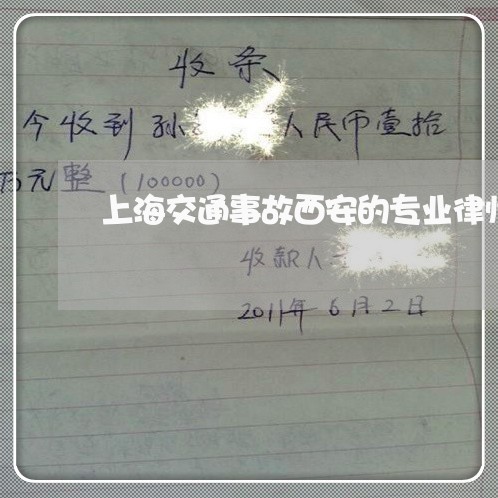 收条
今收到孙 人民币壹拾
万元整(100000)
上海交通事故西安的专业律
收款人
2011年6月2日